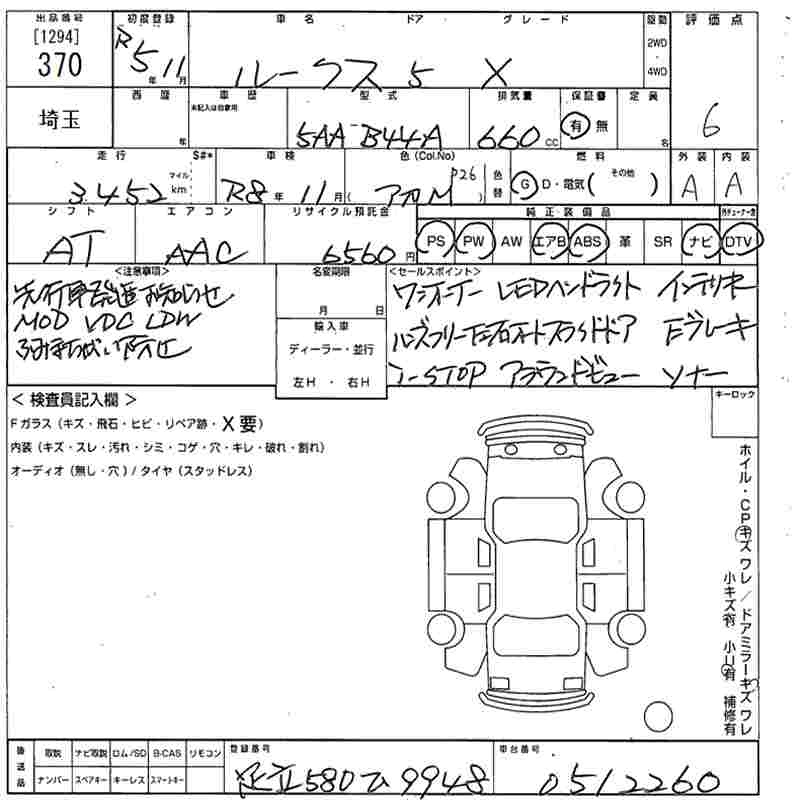 出品番号 初度登録 車名 ドア グレード 駆動 評価点
[1294] 370 R5年11月 ルークス 5 X 2WD・4WD 6
埼玉 西暦 年 車歴 未記入は自家用 型式 5AA-B44A 排気量 660cc 保証書 有 無 定員 名
走行 3,452 マイル km S#* 車検 R8年11月 色(Col.No) (アカM P26) 色替 燃料 G・D・電気( その他 ) 外装 A 内装 A
シフト AT エアコン AAC リサイクル預託金 6560円 純正装備品 PS PW AW エアB ABS 革 SR ナビ DTV
<注意事項> 名変期限 <セールスポイント>
先行車発進お知らせ 月 日 ワンオーナー LEDヘッドライト インテリキー
MOD VDC LDW 輸入車 ハンズフリー 左右オートスライドドア Eブレーキ
ふみまちがい防止 ディーラー・並行 I-STOP アラウンドビュー ソナー
左H・右H
<検査員記入欄> キーロック
Fガラス(キズ・飛石・ヒビ・リペア跡・X要)
内装(キズ・スレ・汚れ・シミ・コゲ・穴・キレ・破れ・割れ)
オーディオ(無し・穴)/タイヤ(スタッドレス)
ホイル・CPキズワレ/ドアミラーキズワレ
小キズ有 小U有 補修有
後送品 取説 ナビ取説 ロム/SD B-CAS リモコン 登録番号 足立580 9948 車台番号 0512260
ナンバー スペアキー キーレス スマートキー